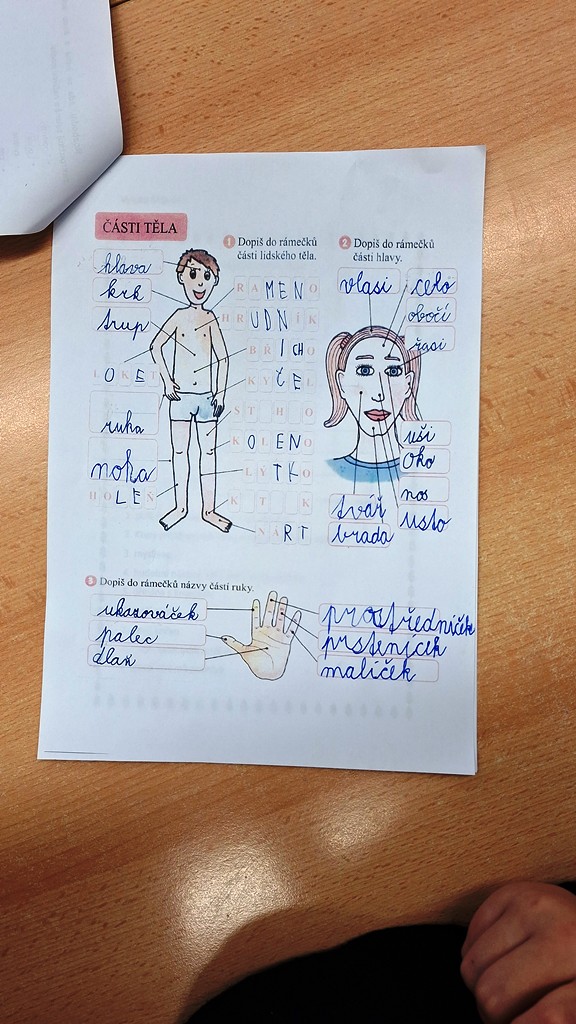 ČÁSTI TĚLA
1 Dopiš do rámečků
části lidského těla.
hlava
krk
trup
LOKET
ruha
noha
HOLEŇ
RAMENO
HRUDNÍK
BŘICHO
KYČEL
ST H O
KOLENO
LÝTKO
K T K
NÁRT
2 Dopiš do rámečků
části hlavy.
vlasi
celo
obočí
řasi
uši
Oko
nos
usto
tvář
brada
3 Dopiš do rámečků názvy částí ruky.
ukazováček
palec
dlaň
prostředníček
prsteníček
malíček